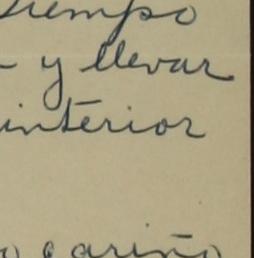 tiempo
- y llevar
interior
o cariño